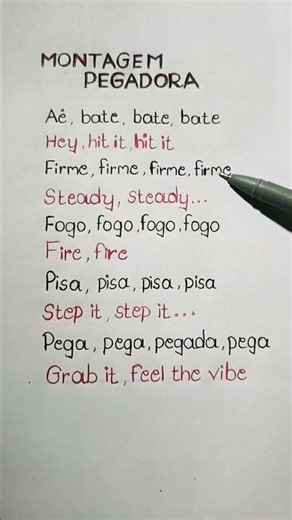 MONTAGEM
PEGADORA
Aê, bate, bate, bate
Hey, hit it, hit it
Firme, firme, firme, firme
Steady, steady...
Fogo, fogo, fogo, fogo
Fire, fire
Pisa, pisa, pisa, pisa
Step it, step it...
Pega, pega, pegada, pega
Grab it, feel the vibe